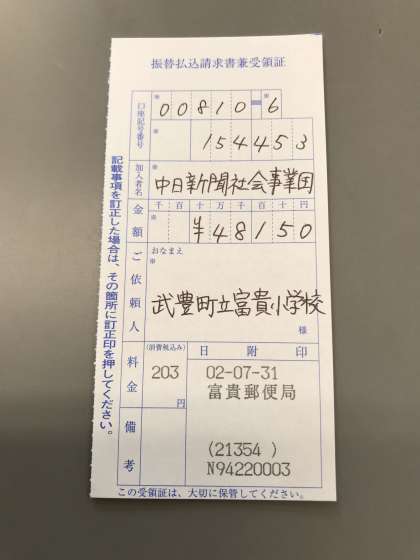 振替払込請求書兼受領証
口座記号番号
※ 00810-6 ※
※ 154453
加入者名
※
中日新聞社会事業団
金額
千 百 十 万 千 百 十 円
※ ¥48150
ご依頼人
おなまえ
※
武豊町立富貴小学校
様
料金
(消費税込み)
203
円
日附印
02-07-31
富貴郵便局
(21354 )
N94220003
備考
記載事項を訂正した場合は、その箇所に訂正印を押してください。
この受領証は、大切に保管してください。